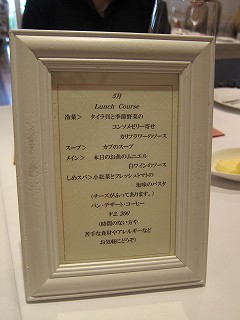 5月
Lunch Course
冷菜> タイラ貝と季節野菜の
コンソメゼリー寄せ
カリフラワーのソース
スープ> カブのスープ
メイン> 本日のお魚のムニエル
白ワインのソース
しめスパ> 小松菜とフレッシュトマトの
塩味のパスタ
(チーズがふってあります。)
パン・デザート・コーヒー
¥2,200
(時間のない方や
苦手な食材やアレルギーなど
お気軽にどうぞ)